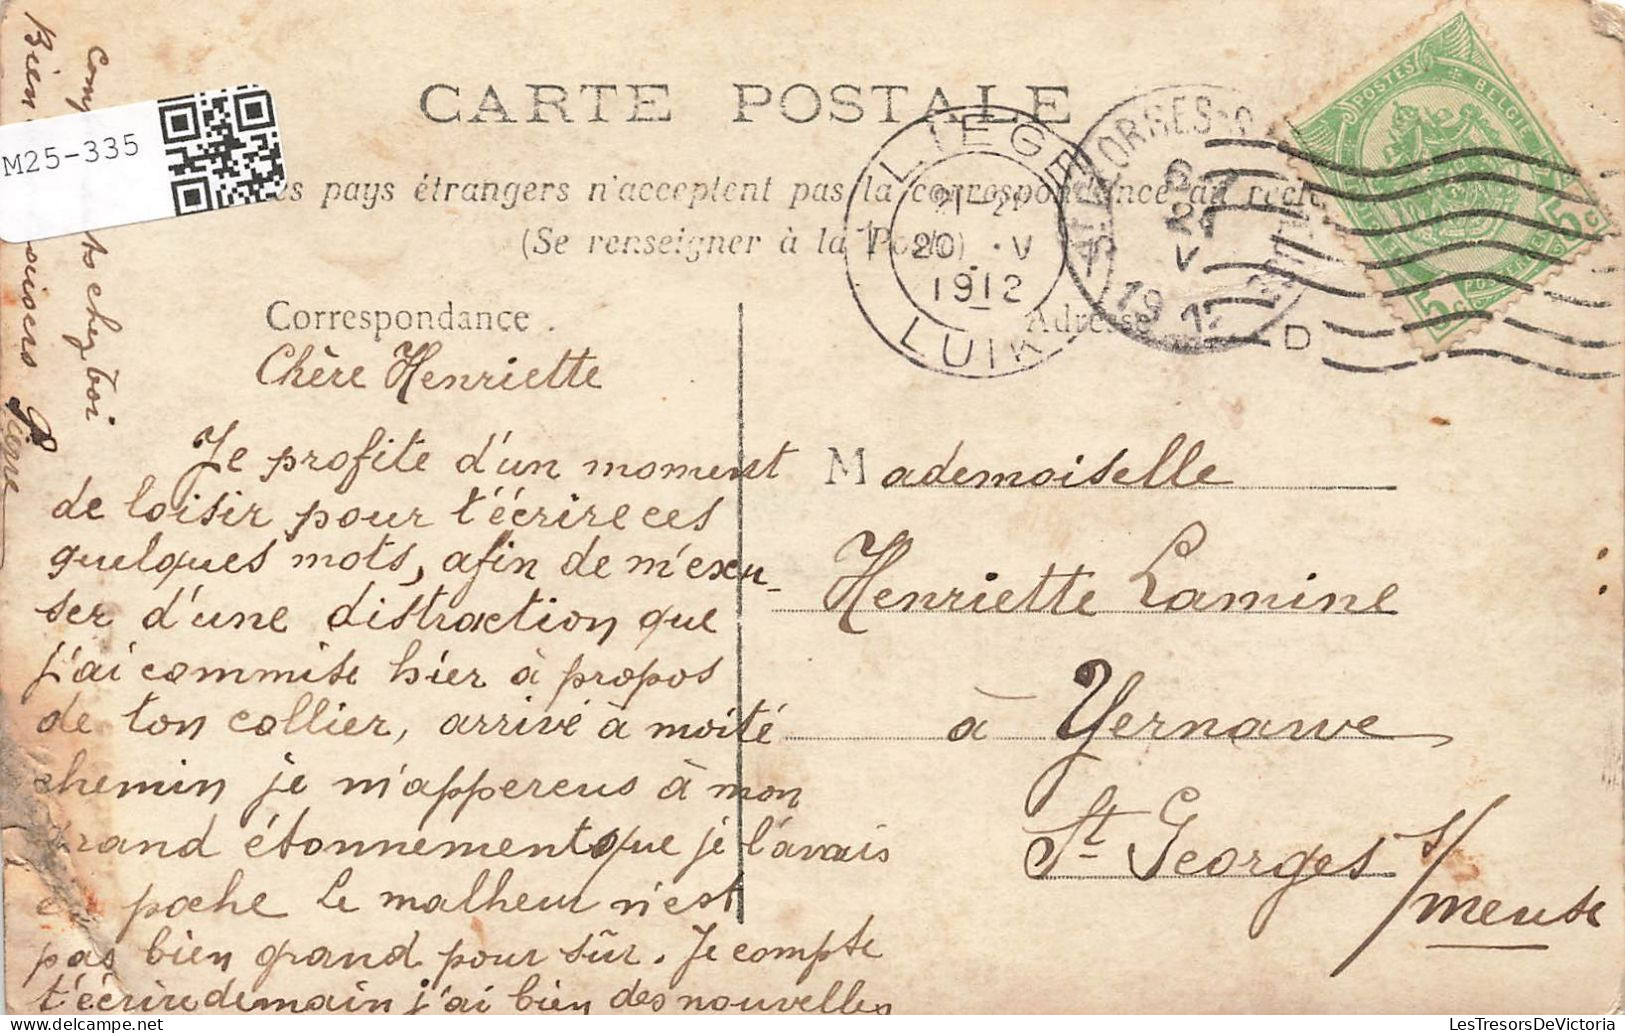 CARTE POSTALE
pays étrangers n'acceptent pas la correspondance au recto
(Se renseigner à la Poste)
M25-335
LIEGE
21-22
20 · V
1912
LUIK
1
V
1912
D
POSTES
BELGIE
5c
5c
Correspondance.
Adresse
Chère Henriette
Je profite d'un moment
de loisir pour t'écrire ces
quelques mots, afin de m'excu-
ser d'une distraction que
j'ai commise hier à propos
de ton collier, arrivé à moité
chemin je m'appercus à mon
grand étonnement que je l'avais
en poche le malheur n'est
pas bien grand pour sûr. Je compte
t'écrire demain j'ai bien des nouvelles
chez toi
Bien
Pierre
Mademoiselle
Henriette Lamine
à Yernawe
St Georges s/
meuse
LesTresorsDeVictoria.com